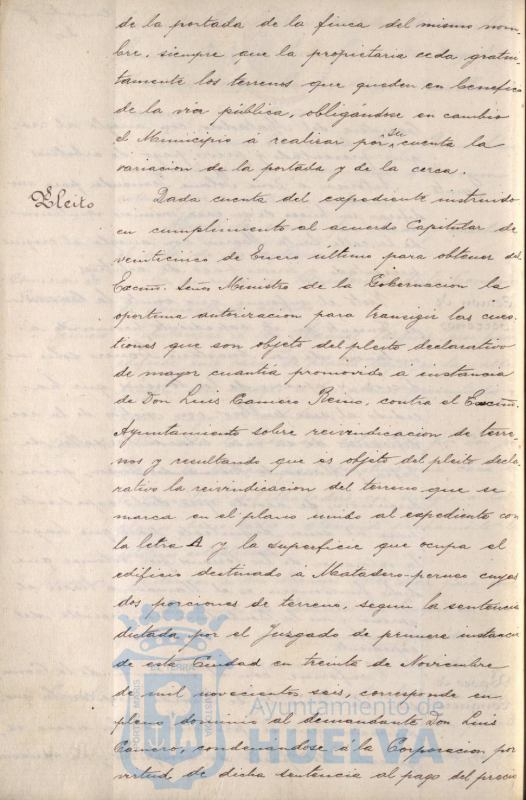 de la portada de la finca del mismo nom-
bre, siempre que la propietaria ceda gratui-
tamente los terrenos que queden en beneficio
de la via pública, obligándose en cambio
el Municipio a realizar por su cuenta la
variacion de la portada y de la cerca.
Pleito
Dada cuenta del expediente instruido
en cumplimiento al acuerdo Capitular de
veinticinco de Enero último para obtener del
Excmo. Señor Ministro de la Gobernacion la
oportuna autorizacion para transigir las cues-
tiones que son objeto del pleito declarativo
de mayor cuantia promovido á instancia
de Don Luis Camero Reino, contra el Excmo.
Ayuntamiento sobre reivindicacion de terre-
nos y resultando que es objeto del pleito decla-
rativo la reivindicacion del terreno que se
marca en el plano unido al expediente con
la letra A y la superficie que ocupa el
edificio destinado á Matadero-perneo cuyas
dos porciones de terreno, segun la sentencia
dictada por el Juzgado de primera instancia
de esta Ciudad en treinta de Noviembre
de mil novecientos seis, corresponde en
pleno dominio al demandante Don Luis
Camero, condenandose á la Corporacion por
virtud de dicha sentencia al pago del precio
Ayuntamiento de
HUELVA